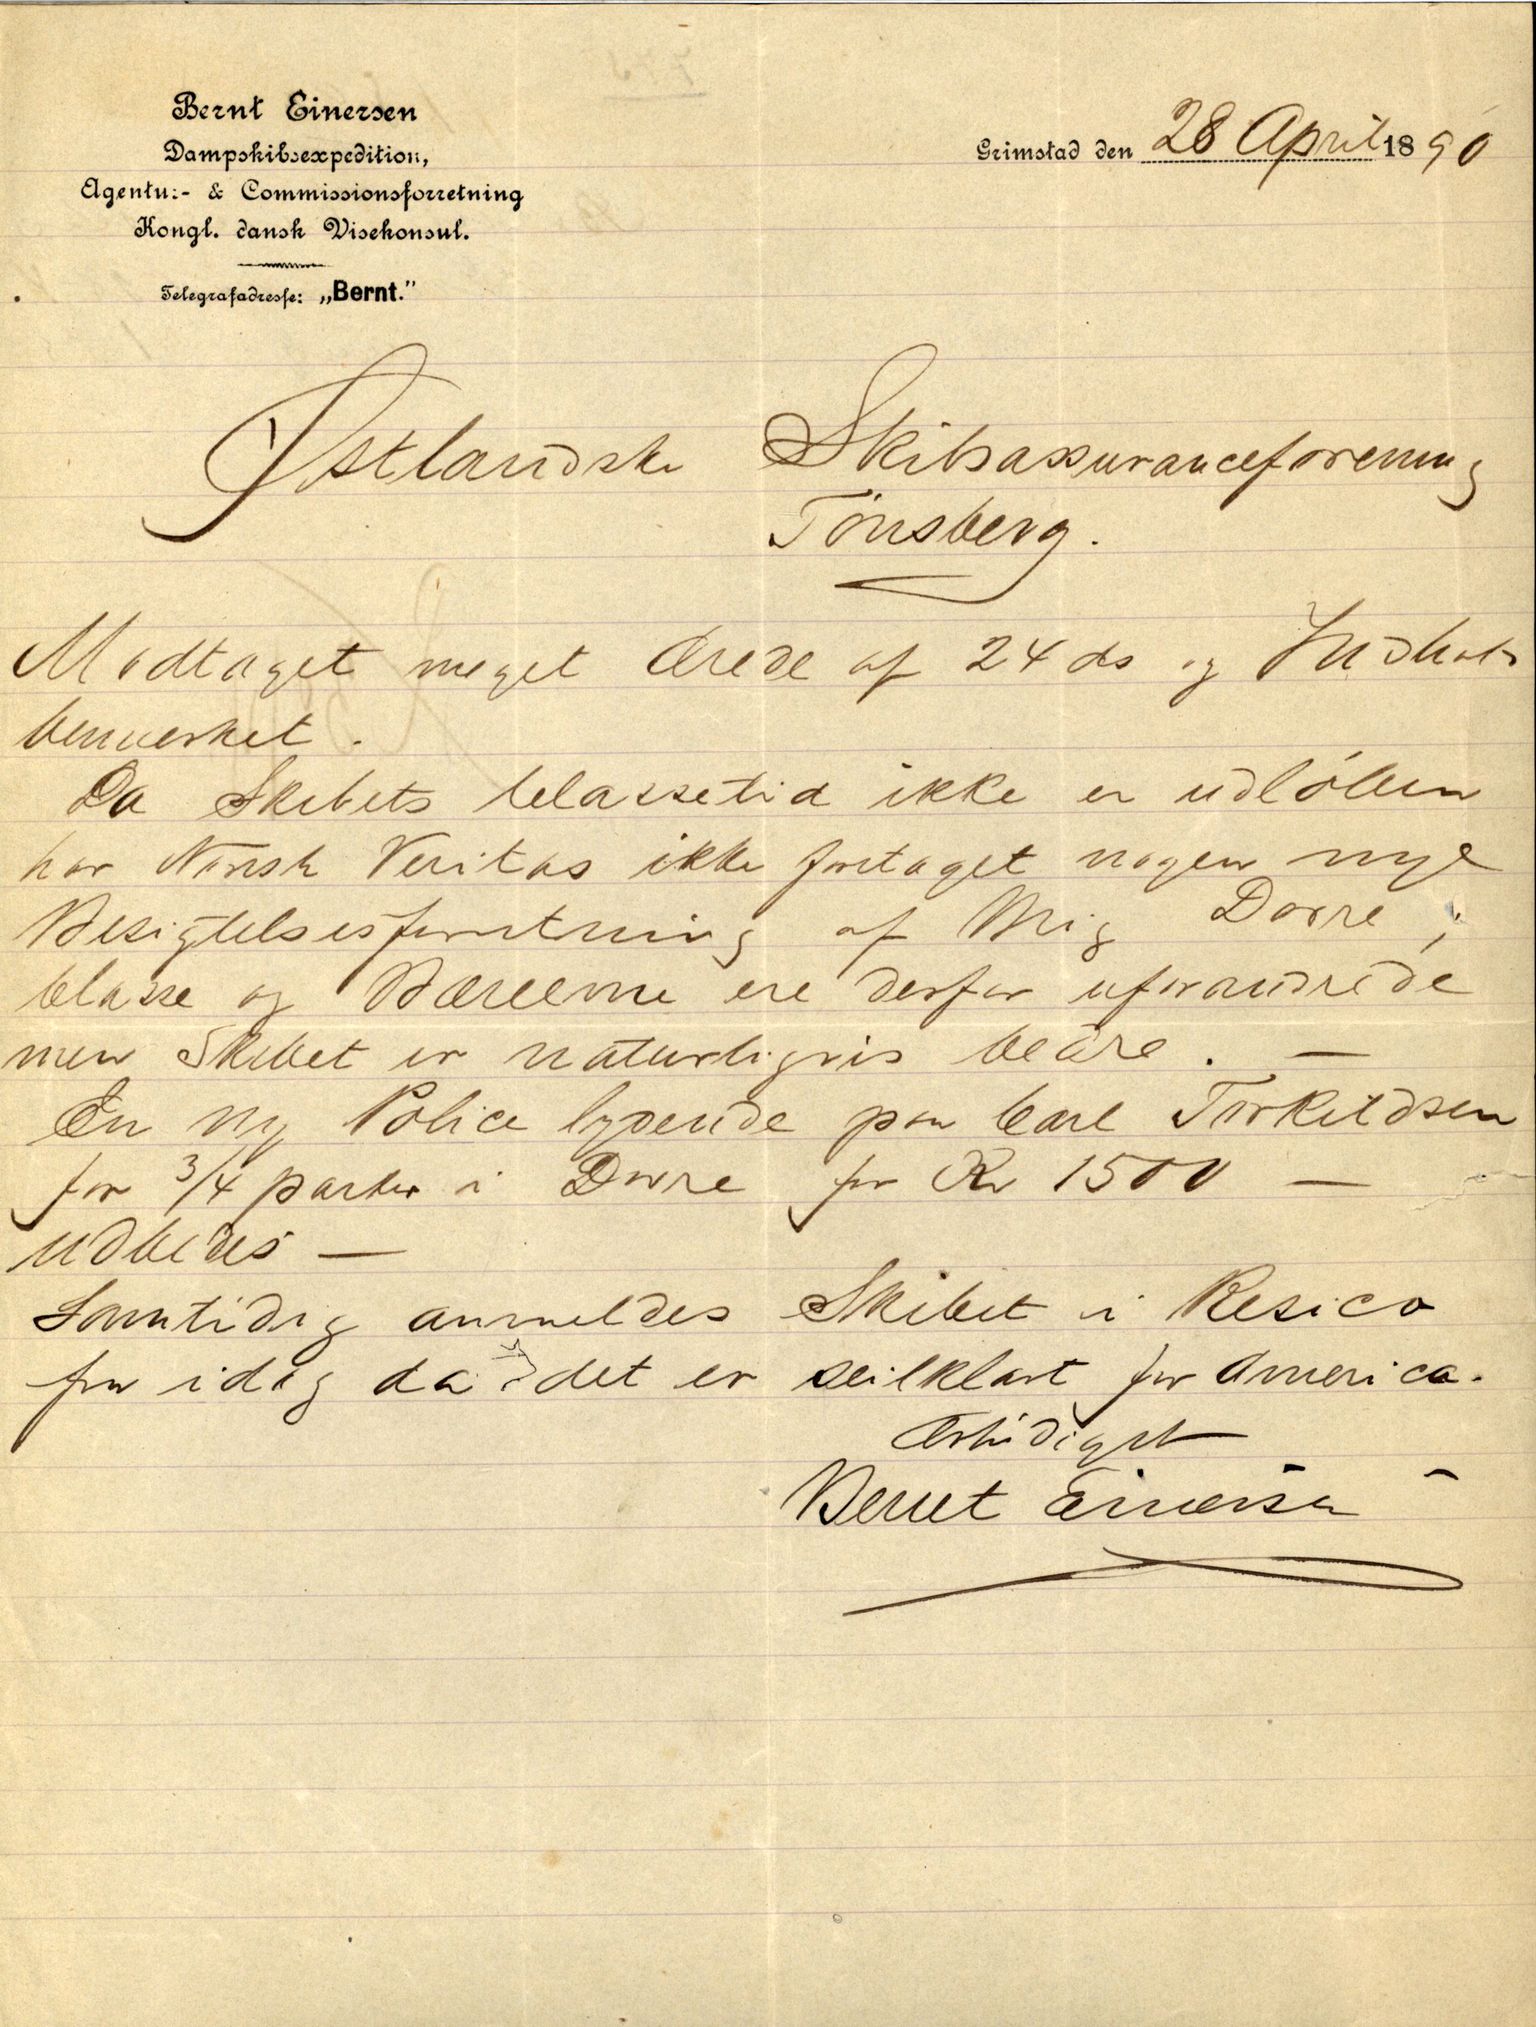 Bernt Einersen
Dampskibsexpedition,
Agentur- & Commissionsforretning
Kongl. dansk Visekonsul.
Telegrafadresse: „Bernt."
Grimstad den 28 April 1890
Østlandske Skibsassuranceforening
Tönsberg.
Modtaget meget ærede af 24 ds og Indhold
bemærket.
Da Skibets Classetid ikke er udlöben
har Norsk Veritas ikke foretaget nogen nye
Besigtelsesforretning af Brig Dovre,
Classe og ere derfor uforandrede
men Skibet er naturligvis bedre. —
En ny Police lydende paa Carl Torkildsen
for 3/4 parter i Dovre for Kr 1500 —
udbedes —
Samtidig anmeldes Skibet i Resico
fra idag da det er seilklart for America.
Ærbödigst
Bernt Einersen